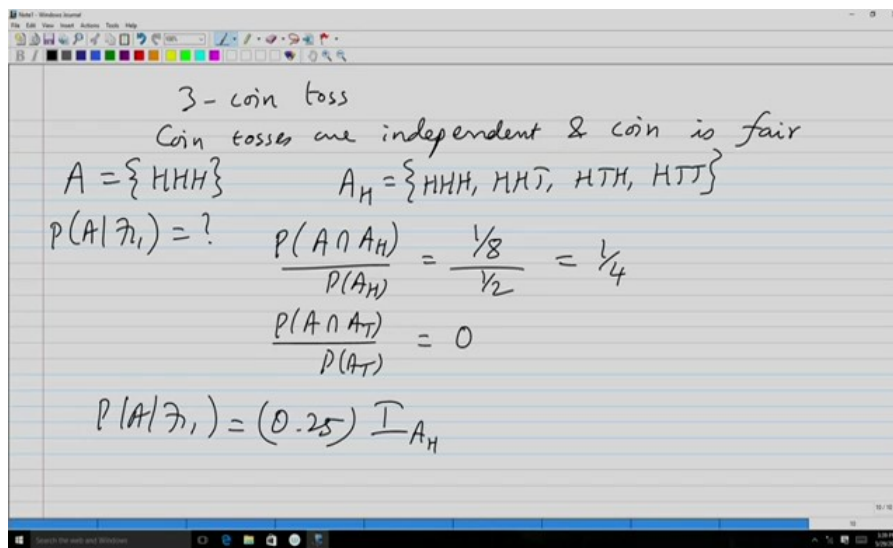 Note1 - Windows Journal
File Edit View Insert Actions Tools Help
3 - coin toss
Coin tosses are independent & coin is fair
A = {HHH} A_H = {HHH, HHT, HTH, HTT}
P(A|ℱ₁) = ? P(A∩A_H) / P(A_H) = 1/8 / 1/2 = 1/4
P(A∩A_T) / P(A_T) = 0
P(A|ℱ₁) = (0.25) I_{A_H}
10 / 10
10
Search the web and Windows